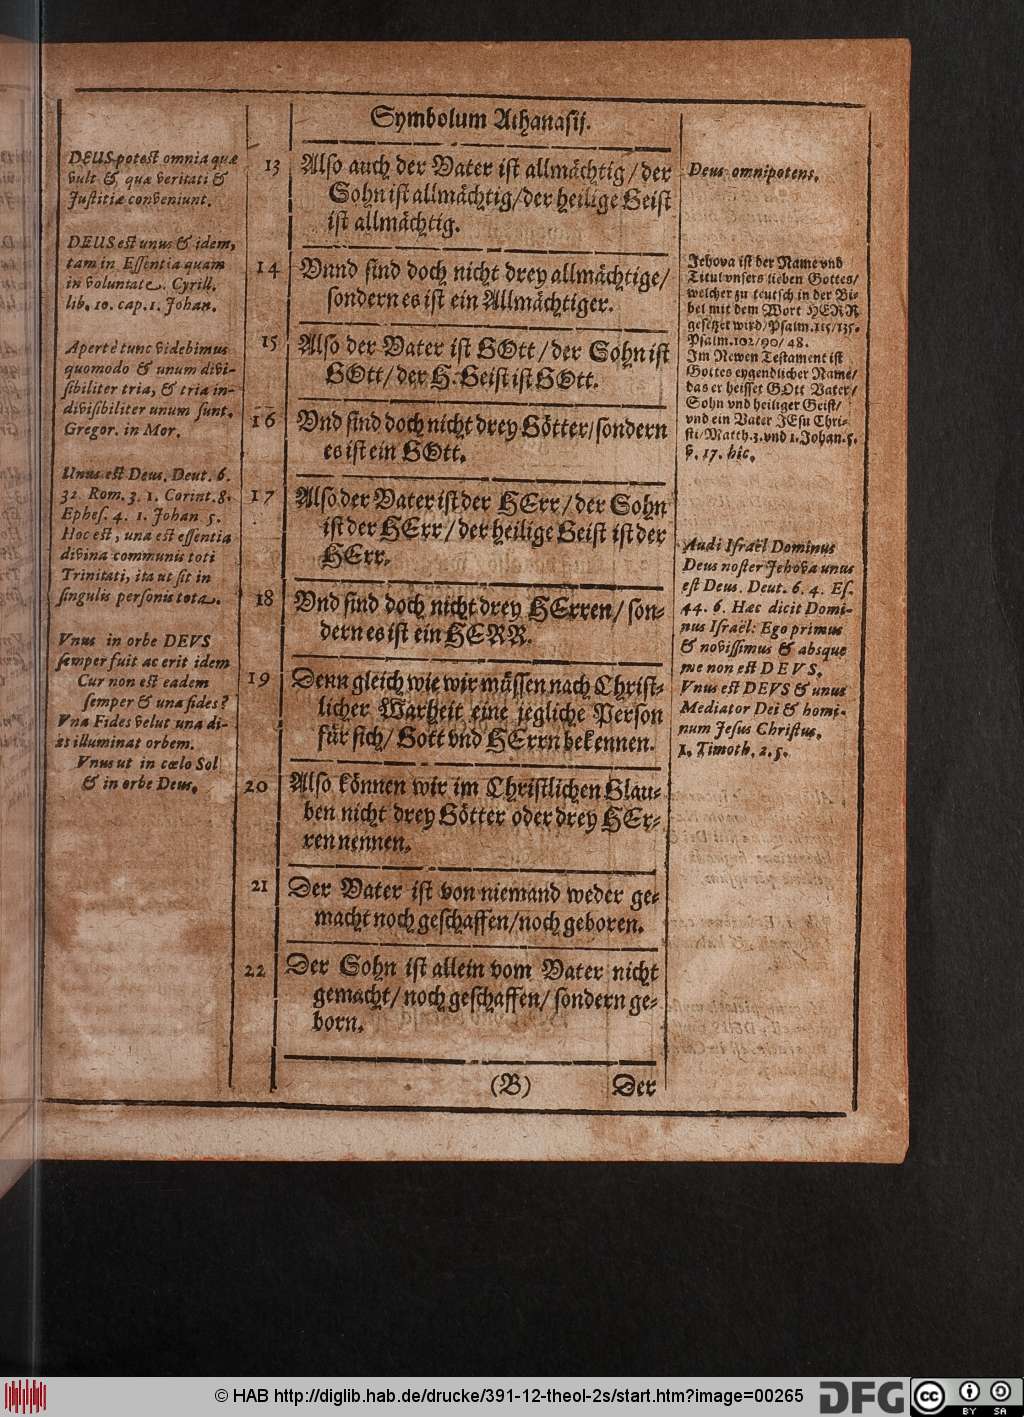 Symbolum Athanasij.
DEUS potest omnia quæ
vult & quæ veritati &
Justitiæ conveniunt.
DEUS est unus & idem,
tam in Essentia quam
in voluntate. Cyrill.
lib. 10. cap. 1. Johan.
Apertè tunc videbimus
quomodo & unum divi-
sibiliter tria, & tria in-
divisibiliter unum sunt.
Gregor. in Mor.
Unus est Deus. Deut. 6.
32. Rom. 3. 1. Corint. 8.
Ephes. 4. 1. Johan 5.
Hoc est, una est essentia
divina communis toti
Trinitati, ita ut sit in
singulis personis tota.
Vnus in orbe DEVS
semper fuit ac erit idem
Cur non est eadem
semper & una fides?
Vna Fides velut una di-
es illuminat orbem.
Vnus ut in cœlo Sol
& in orbe Deus.
13 Also auch der Vater ist allmächtig / der
Sohn ist allmächtig / der heilige Geist
ist allmächtig.
14 Vnnd sind doch nicht drey allmächtige /
sondern es ist ein Allmächtiger.
15 Also der Vater ist GOtt / der Sohn ist
GOtt / der H. Geist ist GOtt.
16 Vnd sind doch nicht drey Götter / sondern
es ist ein GOtt.
17 Also der Vater ist der HErr / der Sohn
ist der HErr / der heilige Geist ist der
HErr.
18 Vnd sind doch nicht drey HErren / son-
dern es ist ein HERR.
19 Denn gleich wie wir müssen nach Christ-
licher Warheit eine jegliche Person
für sich / Gott vnd HErrn bekennen.
20 Also können wir im Christlichen Glau-
ben nicht drey Götter oder drey HEr-
ren nennen.
21 Der Vater ist von niemand weder ge-
macht noch geschaffen / noch geboren.
22 Der Sohn ist allein vom Vater nicht
gemacht / noch geschaffen / sondern ge-
born.
(B) Der
Deus omnipotens.
Jehova ist der Name vnd
Titul vnsers lieben Gottes /
welcher zu teutsch in der Bi-
bel mit dem Wort HERR
gesetzet wird / Psalm. 115 / 135.
Psalm. 102 / 90 / 48.
Im Newen Testament ist
Gottes eygendlicher Name /
das er heisset GOtt Vater /
Sohn vnd heiliger Geist /
vnd ein Vater JEsu Chri-
sti / Matth. 3. vnd 1. Johan. 5.
℣. 17. hic.
Audi Israël Dominus
Deus noster Jehova unus
est Deus. Deut. 6. 4. Es.
44. 6. Hæc dicit Domi-
nus Israël: Ego primus
& novissimus & absque
me non est DEVS.
Vnus est DEVS & unus
Mediator Dei & homi-
num Jesus Christus.
1. Timoth. 2. 5.
© HAB http://diglib.hab.de/drucke/391-12-theol-2s/start.htm?image=00265
DFG
cc
BY SA